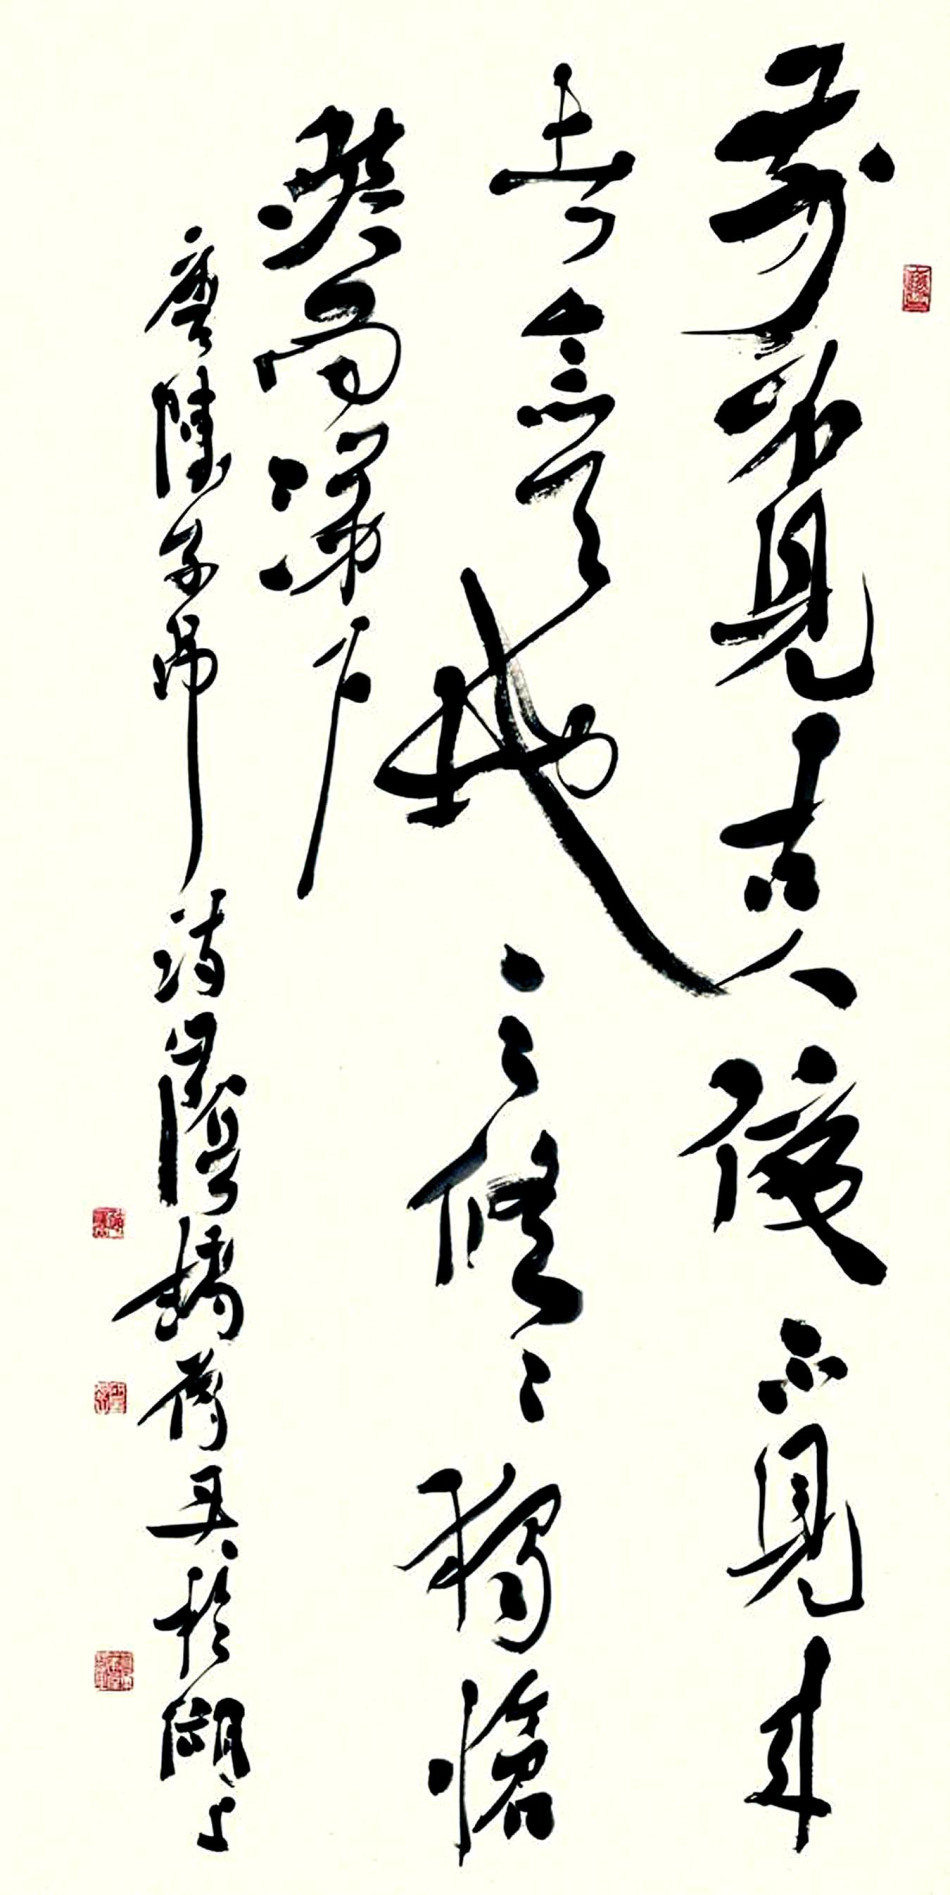 前不見古人後不見来
者念天地之悠々獨愴
然而涕下
唐陳子昂詩 於湖上